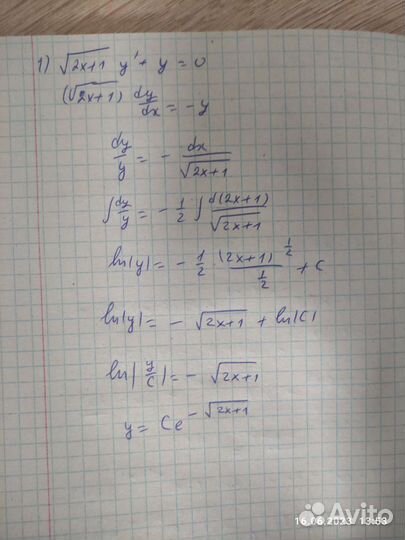 1) √(2x+1) y' + y = 0
(√(2x+1)) dy/dx = -y
dy/y = - dx/√(2x+1)
∫ dy/y = - 1/2 ∫ d(2x+1)/√(2x+1)
ln|y| = - 1/2 · (2x+1)^(1/2)/(1/2) + C
ln|y| = - √(2x+1) + ln|C|
ln|y/C| = - √(2x+1)
y = Ce^(-√(2x+1))
16.06.2023 13:53
Avito